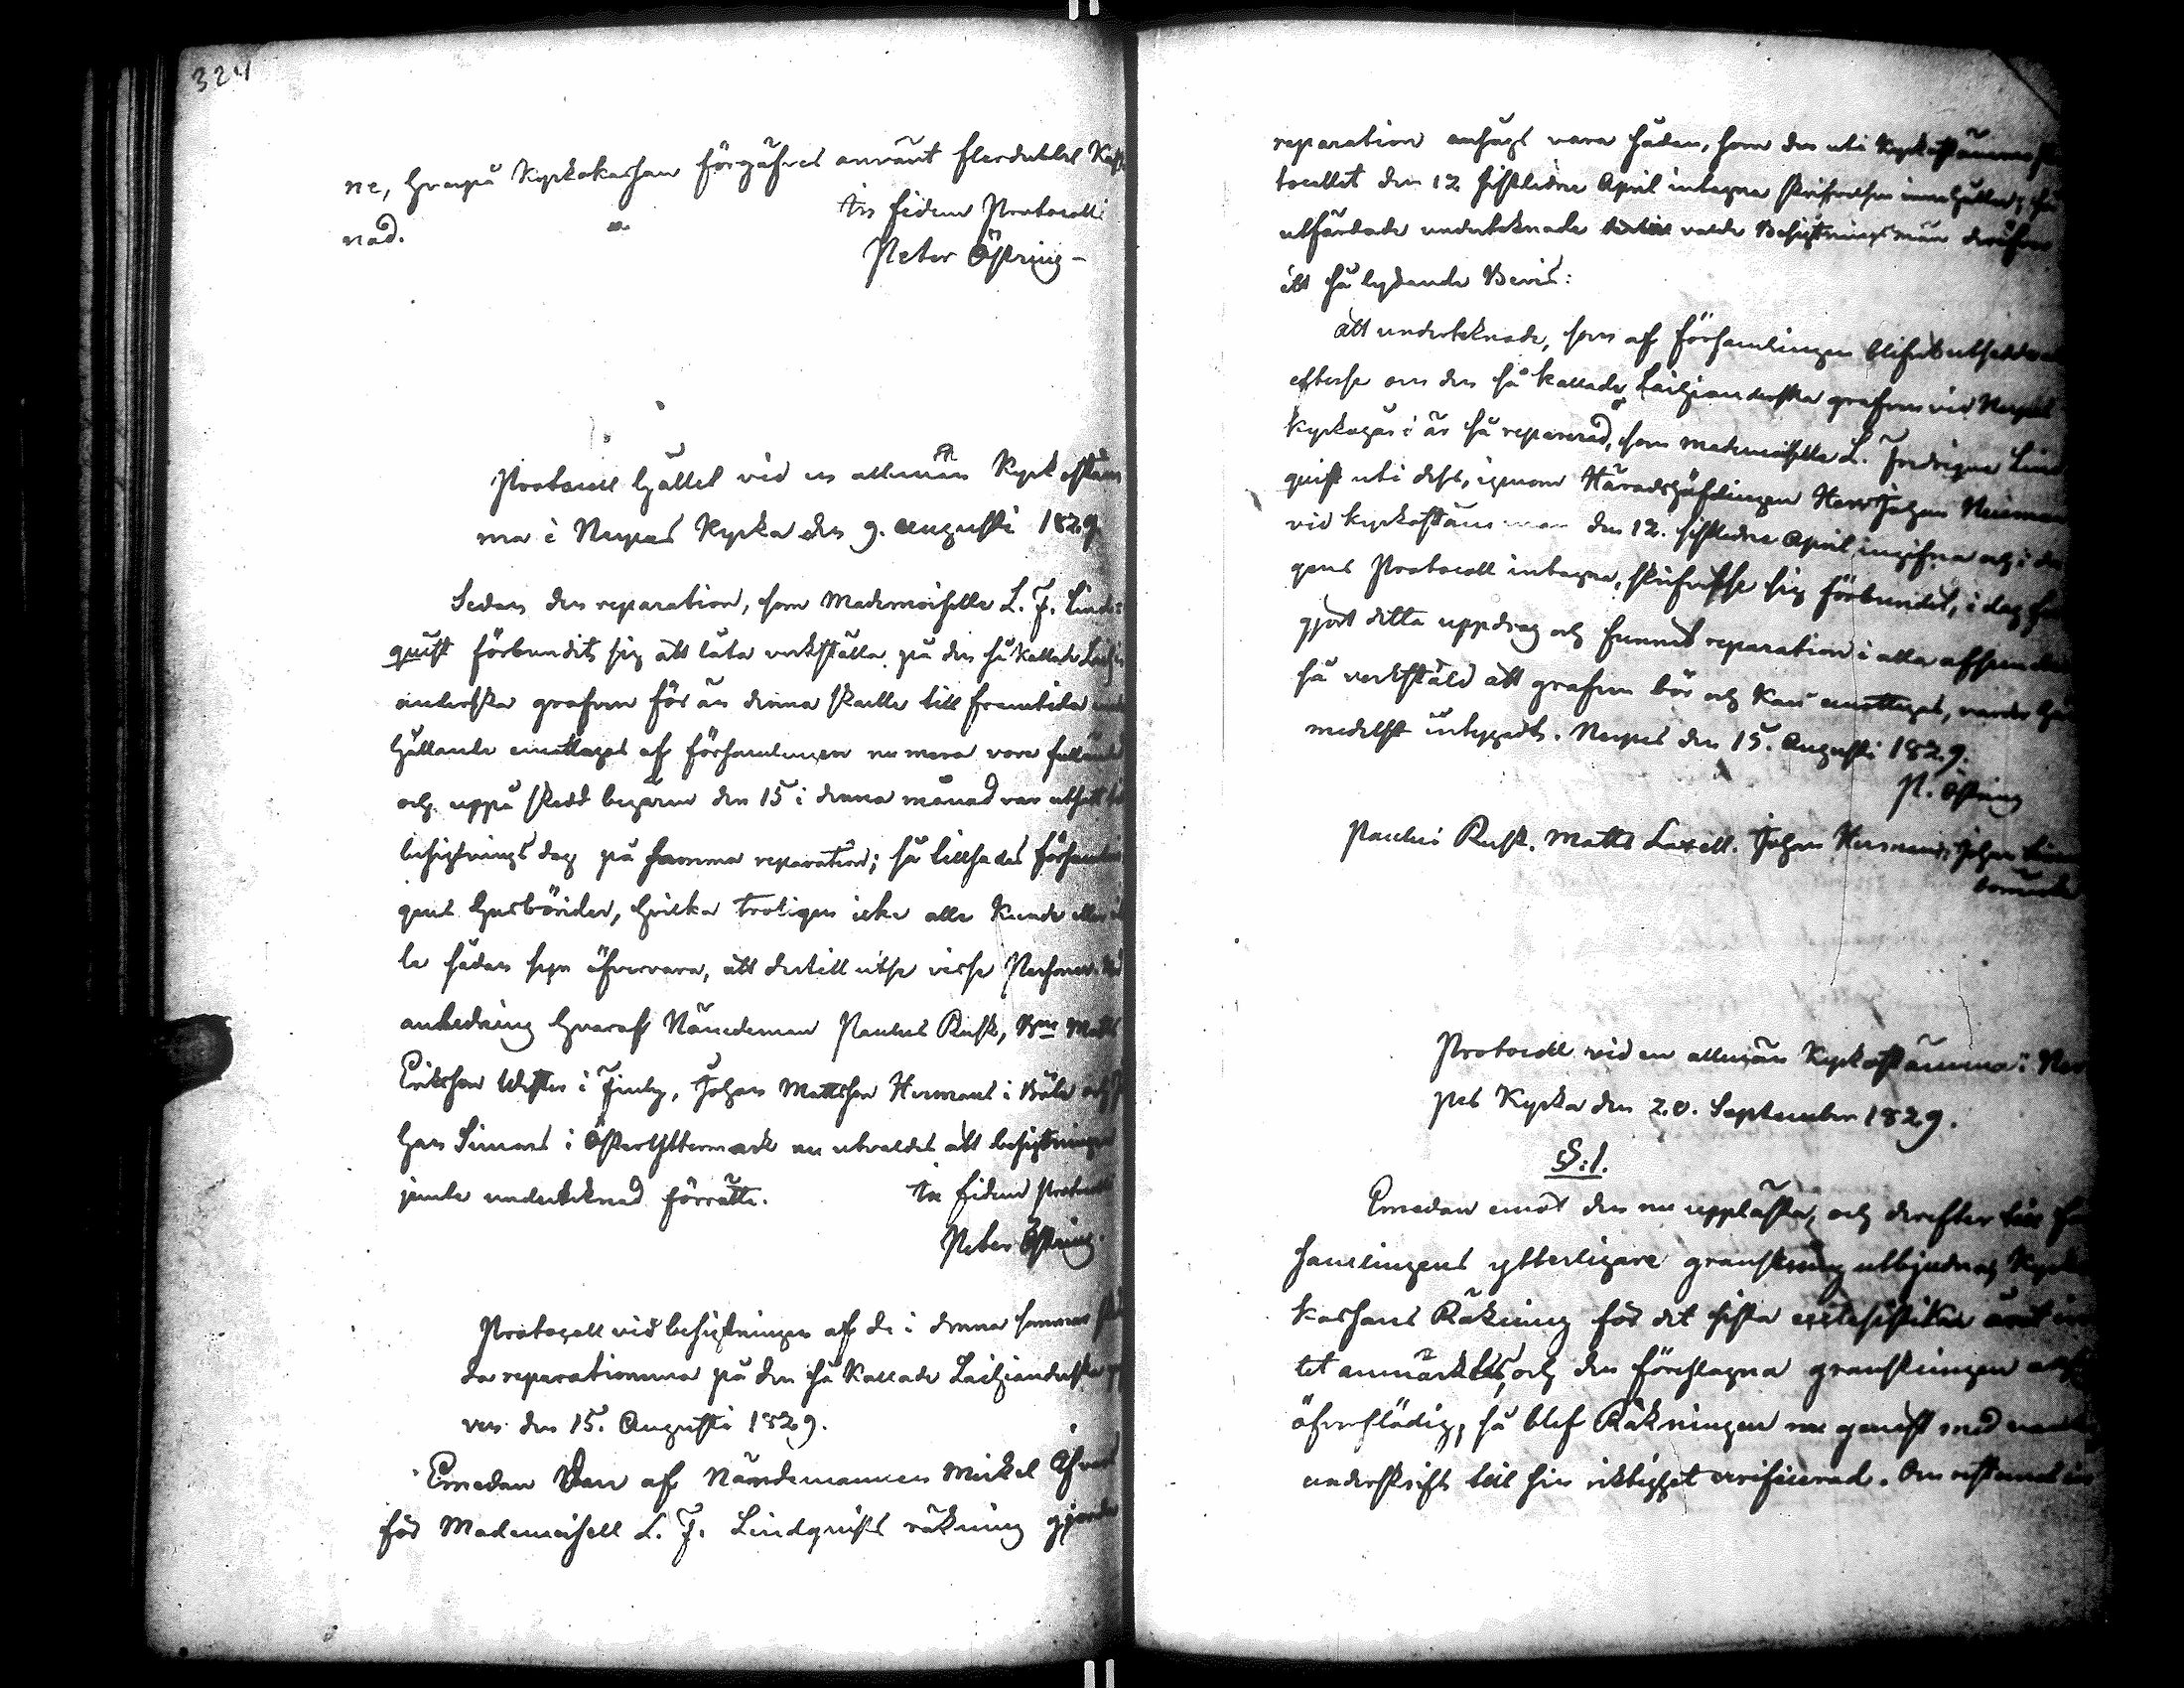 324
ne, hvarpå Kyrkokassan förgäfves använt flerdubbel Kost
nad.
In fidem Protocolli
Peter Östring
Protocoll hållet vid en allmän Kyrkostäm
ma i Nerpes Kyrka den 9. Augusti 1829
Sedan den reparation, som Mademoiselle L. F. Lind=
quist förbundit sig att låta verkställa på den så kallade
anderska grafven för än denna skulle till framtida
hållande emottagas af Församlingen nu mera vore fulländad
och uppå skedd begäran den 15 i denna månad var utsatt till
besigtnings dag på samma reparation; så tillsades Församlin
gens Husbönder, hvilka troligen icke alla kunde eller
le sådan syn öfvervara, att dertill utse visse Personer.
anledning hvaraf Nämndeman Paulus Rusk, Bn Matts
Eriksson West i Finby, Johan Mattsson Hermans i Böle och
han Simons i ÖsterYttermark nu utvaldes att besigtningen
jemte undertecknad förrätta.
In fidem Protocolli
Peter Östring.
Protocoll vid besigtningen af de i denna sommar
da reparationerna på den så kallade Laihianderska
ven den 15. Augusti 1829.
Emedan den af Nämndemannen Mickel
för Mademoisell L. F. Lindquists räkning gjorda
reparation ansågs vara sådan, som den uti Kyrkostämmo Pro
tocollet den 12 sistledne April intagna skrifvelsen innehåller, så
utfärdade undertecknade dertill valde Besigtningsmän deröfver
ett så lydande Bevis:
Att undertecknade, som af Församlingen blifvit utsedde att
efterse om den så kallade Laihianderska grafven vid Nerpes
Kyrkogård är så reparerad, som Mademoiselle L. Fredrique Lind
quist uti dess, genom Häradshöfdingen Herr Johan
vid Kyrkostämman den 12. sistledne April ingifna och i da
gens Protocoll intagna, skrifvelse sig förbundit, i dag
gjort detta uppdrag och funnit reparation i alla afseenden
så verkställd att grafven bör och kan emottagas, varder här
medelst intygadt. Nerpes den 15. Augusti 1829.
P. Östring
Paulus Rusk. Matts Laxell. Johan Hermans. Johan
Protocoll vid en allmän Kyrkostämma i Ner
pes Kyrka den 20. September 1829.
§:1.
Emedan emot den nu upplästa, och derefter till För
samlingens ytterligare granskning utbjudna, Kyrko
kassans Räkning för det sista ecclesiastika året in
tet anmärktes, och den föreslagna granskningen ansågs
öfverflödig, så blef Räkningen nu genast med
underskrift till sin riktighet verificerad.